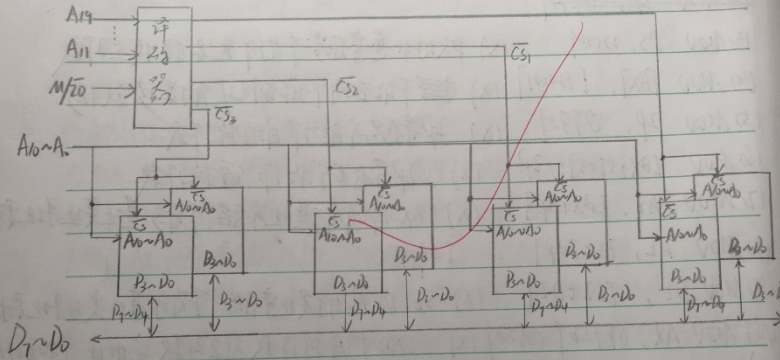 A19
译
A11
码
M/IO
器
CS1
CS2
CS3
A10~A0
CS
A10~A0
CS
A10~A0
D3~D0
D3~D0
D7~D4
D3~D0
CS
A10~A0
CS
A10~A0
D3~D0
D3~D0
D7~D4
D3~D0
CS
A10~A0
CS
A10~A0
D3~D0
D3~D0
D7~D4
D3~D0
CS
A10~A0
CS
A10~A0
D3~D0
D3~D0
D7~D4
D7~D0